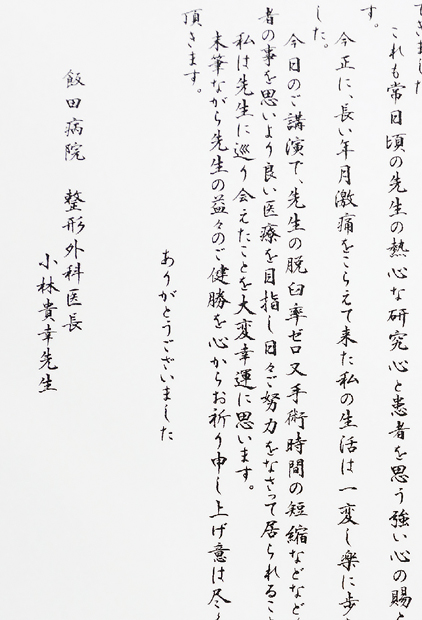 できました
す。
これも常日頃の先生の熱心な研究心と患者を思う強い心の賜と
今正に、長い年月激痛をこらえて来た私の生活は一変し楽に歩
した。
今日のご講演で、先生の脱臼率ゼロ又手術時間の短縮などなど
者の事を思いより良い医療を目指し日々ご努力をなさって居られること
私は先生に巡り会えたことを大変幸運に思います。
末筆ながら先生の益々のご健勝を心からお祈り申し上げ意は尽く
頂きます。
ありがとうございました
飯田病院 整形外科医長
小林貴幸先生